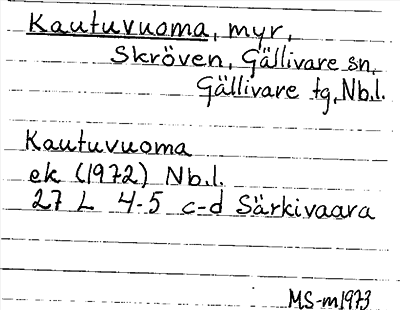 Kautuvuoma, myr,
Skröven, Gällivare sn,
Gällivare tg, Nb.l.
Kautuvuoma
ek (1972) Nb.l.
27 L 4-5 c-d Särkivaara
MS-m1973